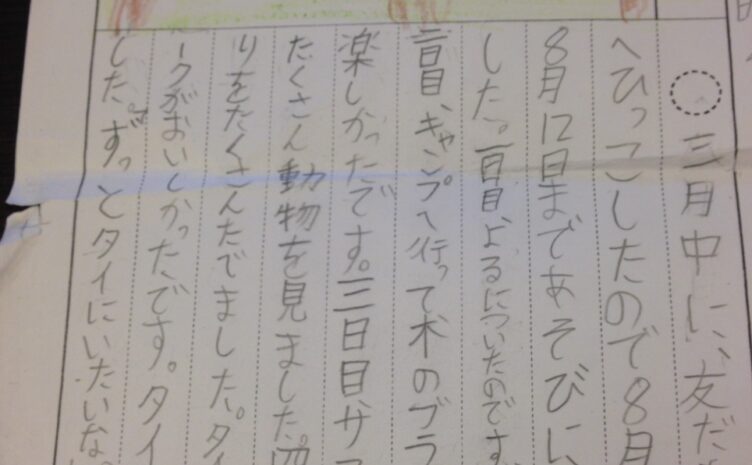 三月中に、友だ
へひっこしたので8月
8月12日まであそびに
した。一日目、よるについたのです
二日目、キャンプへ行って木のブラ
楽しかったです。三日目、サフ
たくさん動物を見ました。四
りをたくさんたでました。タイ
ークがおいしかったです。タイ
した。ずっとタイにいたいな